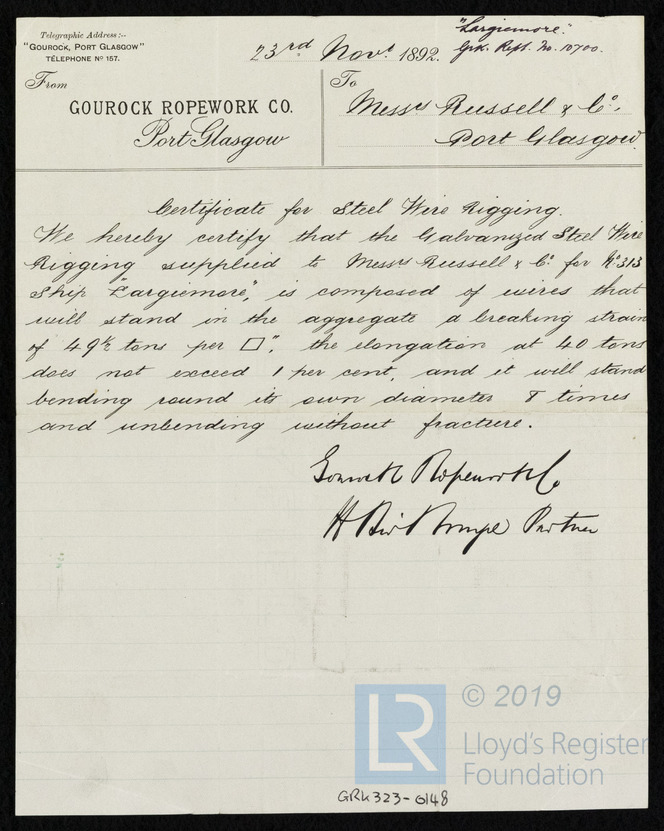 Telegraphic Address:-
"GOUROCK, PORT GLASGOW"
TELEPHONE Nº 157.
23rd Novr 1892.
"Largiemore".
Grk. Rept. No. 10700.
From
GOUROCK ROPEWORK CO.
Port Glasgow
To
Messrs Russell & Co.,
Port Glasgow.
Certificate for Steel Wire Rigging.
We hereby certify that the Galvanized Steel Wire
Rigging supplied to Messrs Russell & Co. for No. 313
Ship "Largiemore", is composed of wires that
will stand in the aggregate a breaking strain
of 49½ tons per □", the elongation at 40 tons
does not exceed 1 per cent, and it will stand
bending round its own diameter 8 times
and unbending without fracture.
Gourock Ropework Co
H Partner
© 2019
LR
Lloyd's Register
Foundation
GRK323-0148